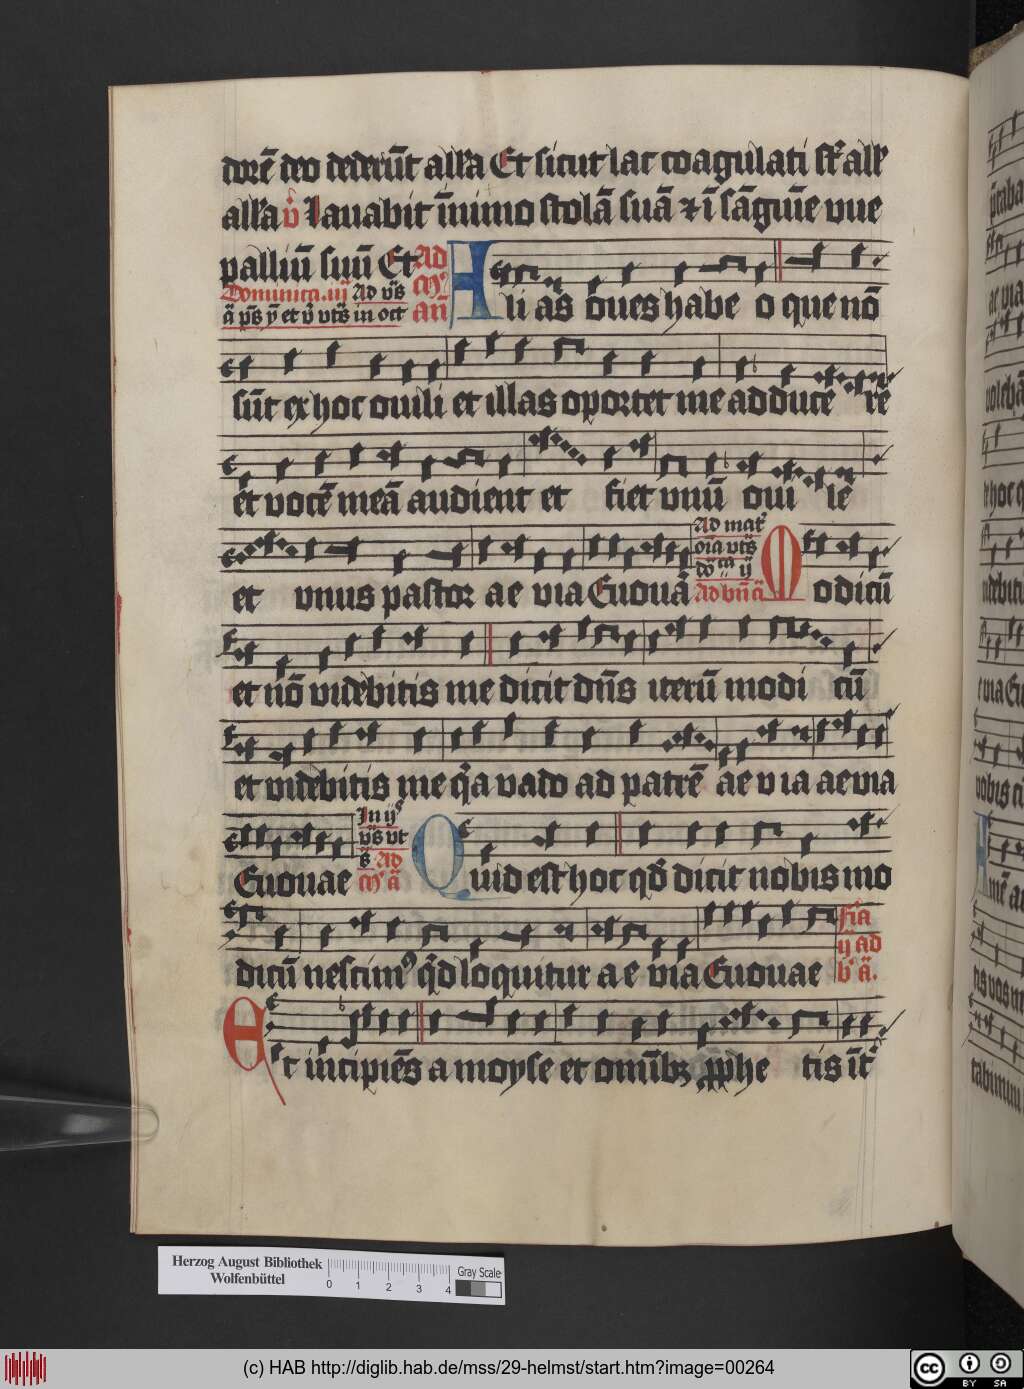 dorē deo dederūt all'a Et sicut lac coagulati st' all'
all'a v̉ Lauabit ī uino stolā suā ⁊ ī sāguīe vue
palliū suū Et Ad
Dominica .iij Ad vs̄ m̄
ā ps̄ ỹ et v̉ vts̄ in oct an̄
Ali as̄ oues habe o que nō
sūt ex hoc ouili et illas oportet me adducē rē
et vocē meā audient et fiet vnū oui lē
et vnus pastor ae via Euouā
Ad mat'
oīa vts̄
dō ca ij
Ad bn̄ ā
Modicū
et nō videbitis me dicit dn̄s iterū modi cū
et videbitis me q̉a vado ad patrē ae v ia aeuia
Euouae
In ij
vs̄ vt
s̄ Ad
m̉ ā
Quid est hoc qd̄ dicit nobis mo
dicū nescim⁹ q̉d loquitur a e via Euouae
fīa
ij ad
b' ā.
Et incipiēs a moyse et omībꝫ ꝓphe tis īt'
Herzog August Bibliothek
Wolfenbüttel
0 1 2 3 4
Gray Scale
(c) HAB http://diglib.hab.de/mss/29-helmst/start.htm?image=00264
cc BY SA